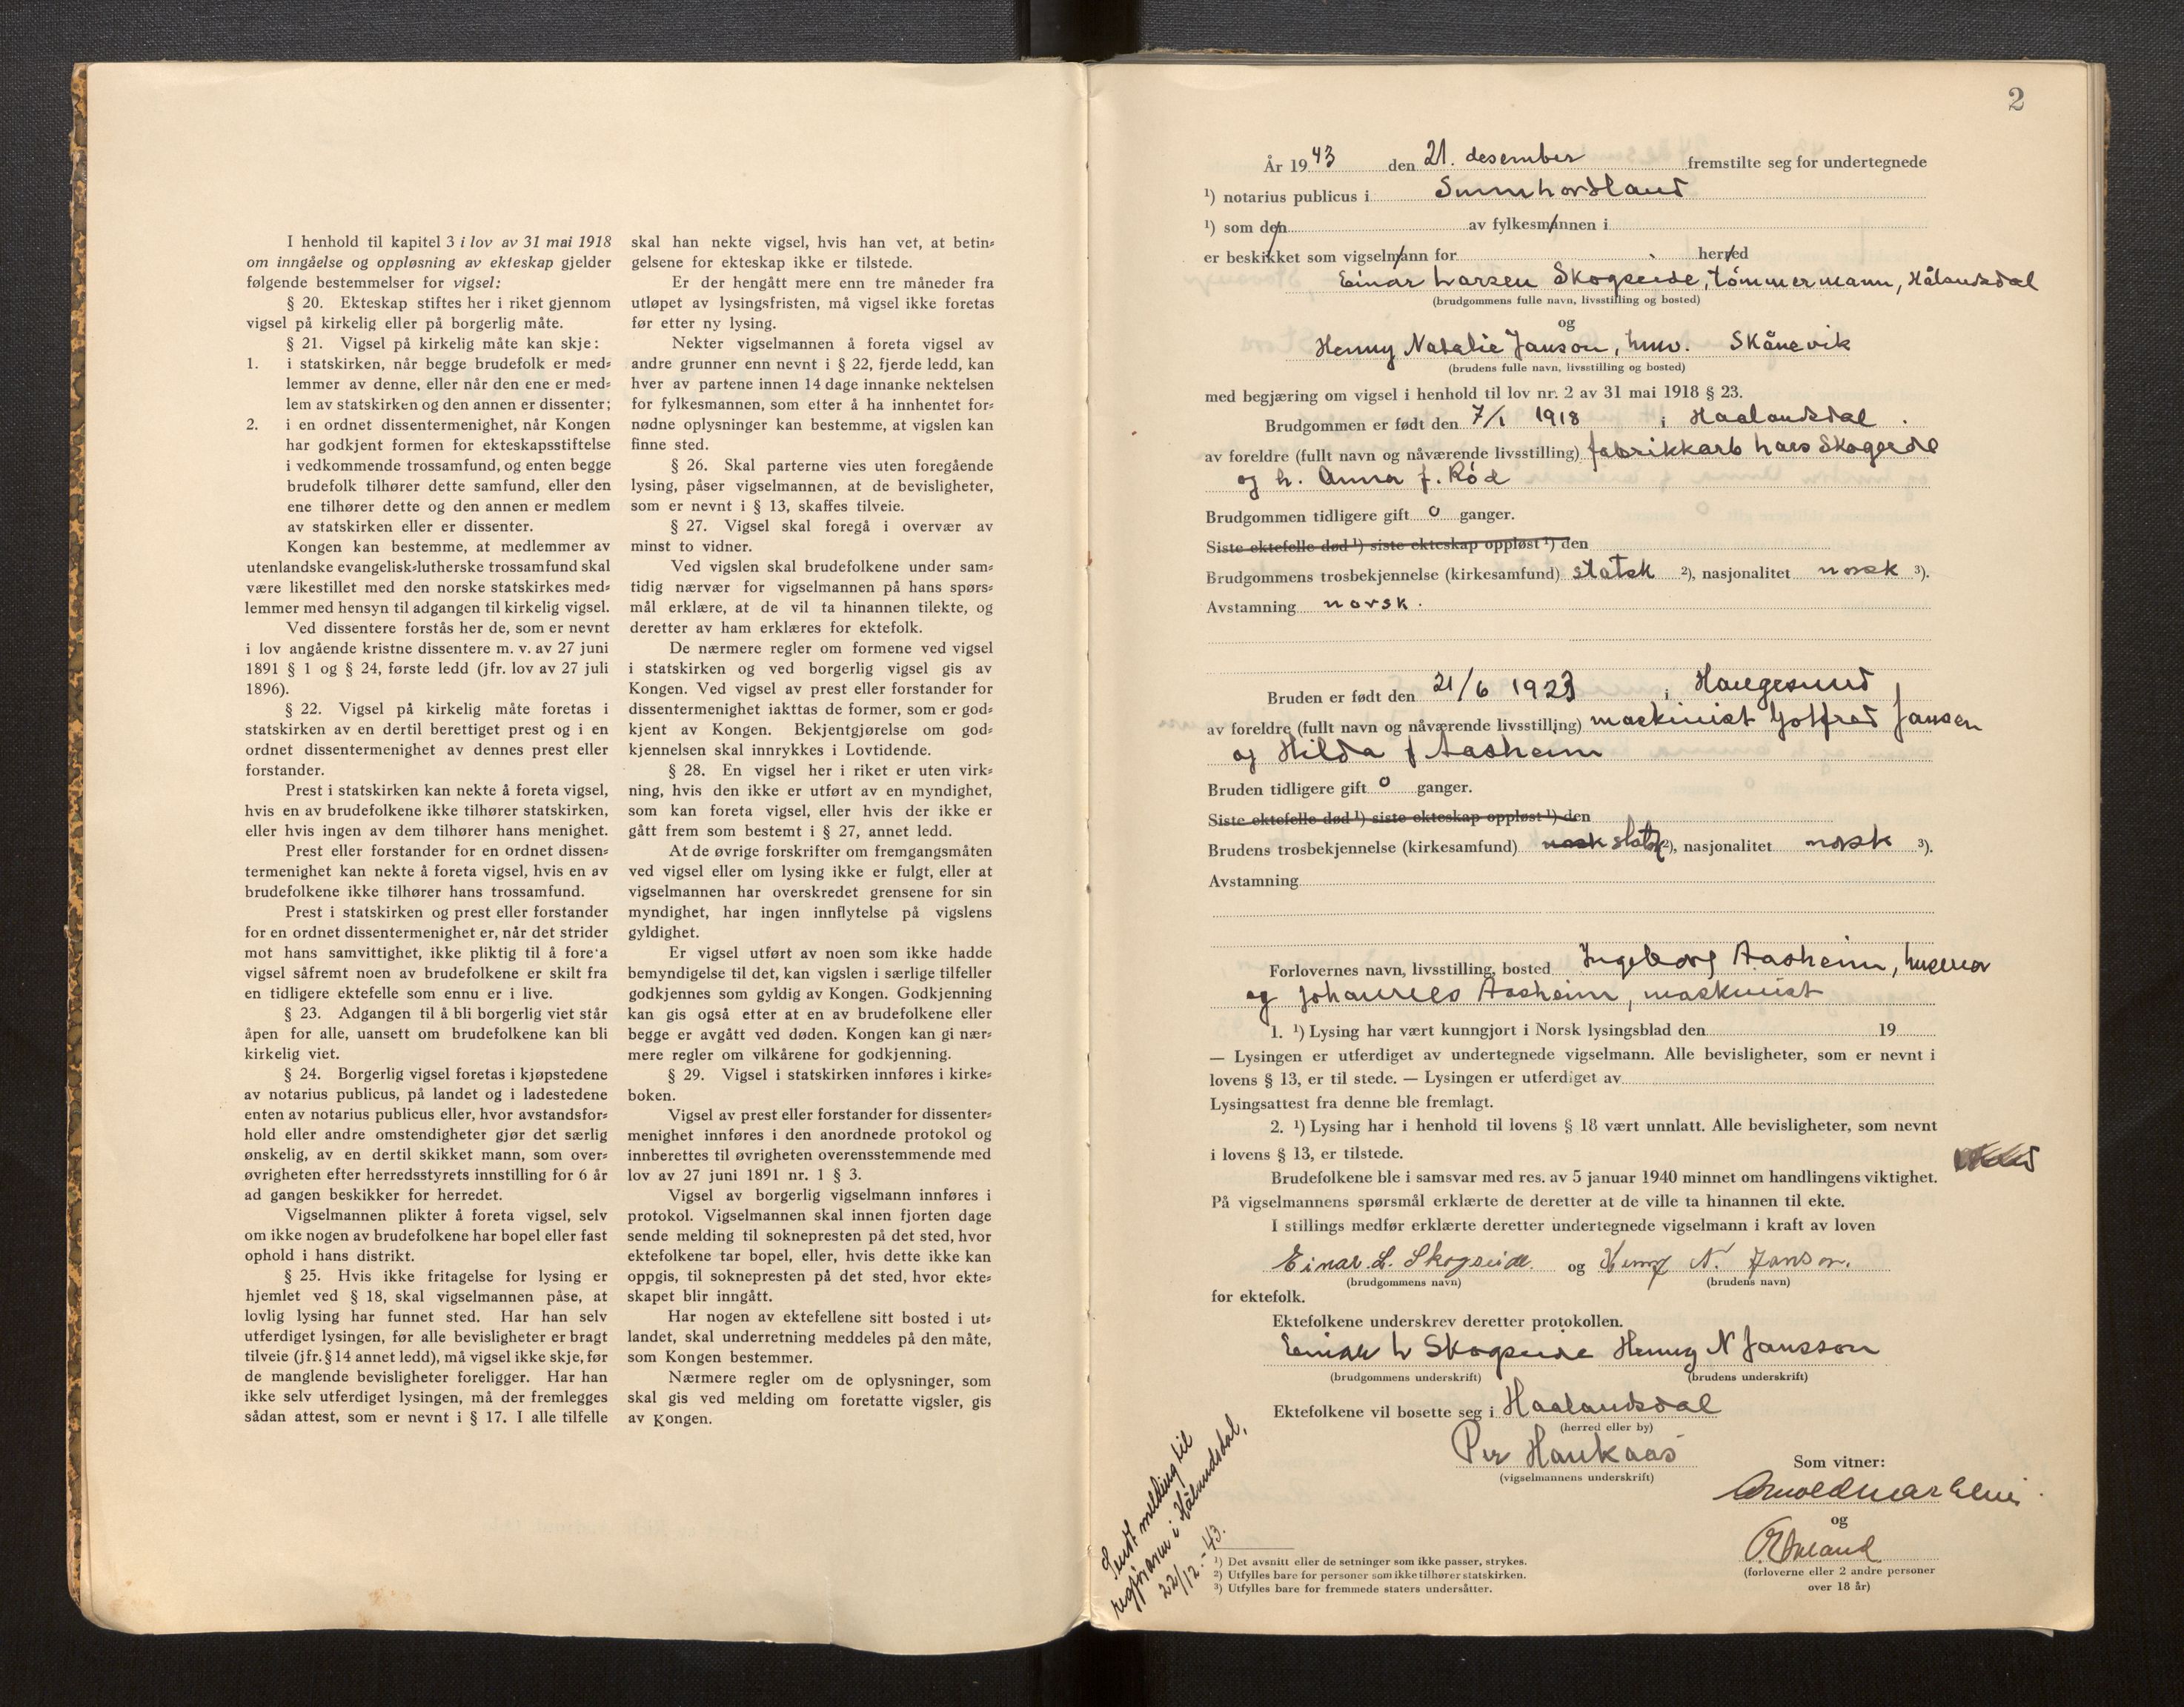 I henhold til kapitel 3 i lov av 31 mai 1918
om inngåelse og oppløsning av ekteskap gjelder
følgende bestemmelser for vigsel:
§ 20. Ekteskap stiftes her i riket gjennom
vigsel på kirkelig eller på borgerlig måte.
§ 21. Vigsel på kirkelig måte kan skje:
1. i statskirken, når begge brudefolk er med=
lemmer av denne, eller når den ene er med=
lem av statskirken og den annen er dissenter;
2. i en ordnet dissentermenighet, når Kongen
har godkjent formen for ekteskapsstiftelse
i vedkommende trossamfund, og enten begge
brudefolk tilhører dette samfund, eller den
ene tilhører dette og den annen er medlem
av statskirken eller er dissenter.
Kongen kan bestemme, at medlemmer av
utenlandske evangelisk=lutherske trossamfund skal
være likestillet med den norske statskirkes med=
lemmer med hensyn til adgangen til kirkelig vigsel.
Ved dissentere forstås her de, som er nevnt
i lov angående kristne dissentere m. v. av 27 juni
1891 § 1 og § 24, første ledd (jfr. lov av 27 juli
1896).
§ 22. Vigsel på kirkelig måte foretas i
statskirken av en dertil berettiget prest og i en
ordnet dissentermenighet av dennes prest eller
forstander.
Prest i statskirken kan nekte å foreta vigsel,
hvis en av brudefolkene ikke tilhører statskirken,
eller hvis ingen av dem tilhører hans menighet.
Prest eller forstander for en ordnet dissen=
termenighet kan nekte å foreta vigsel, hvis en av
brudefolkene ikke tilhører hans trossamfund.
Prest i statskirken og prest eller forstander
for en ordnet dissentermenighet er, når det strider
mot hans samvittighet, ikke pliktig til å fore'a
vigsel såfremt noen av brudefolkene er skilt fra
en tidligere ektefelle som ennu er i live.
§ 23. Adgangen til å bli borgerlig viet står
åpen for alle, uansett om brudefolkene kan bli
kirkelig viet.
§ 24. Borgerlig vigsel foretas i kjøpstedene
av notarius publicus, på landet og i ladestedene
enten av notarius publicus eller, hvor avstandsfor=
hold eller andre omstendigheter gjør det særlig
ønskelig, av en dertil skikket mann, som over=
øvrigheten efter herredsstyrets innstilling for 6 år
ad gangen beskikker for herredet.
Vigselmannen plikter å foreta vigsel, selv
om ikke nogen av brudefolkene har bopel eller fast
ophold i hans distrikt.
§ 25. Hvis ikke fritagelse for lysing er
hjemlet ved § 18, skal vigselmannen påse, at
lovlig lysing har funnet sted. Har han selv
utferdiget lysingen, før alle bevisligheter er bragt
tilveie (jfr. § 14 annet ledd), må vigsel ikke skje, før
de manglende bevisligheter foreligger. Har han
ikke selv utferdiget lysingen, må der fremlegges
sådan attest, som er nevnt i § 17. I alle tilfelle
skal han nekte vigsel, hvis han vet, at betin=
gelsene for ekteskap ikke er tilstede.
Er der hengått mere enn tre måneder fra
utløpet av lysingsfristen, må vigsel ikke foretas
før etter ny lysing.
Nekter vigselmannen å foreta vigsel av
andre grunner enn nevnt i § 22, fjerde ledd, kan
hver av partene innen 14 dage innanke nektelsen
for fylkesmannen, som etter å ha innhentet for=
nødne oplysninger kan bestemme, at vigslen kan
finne sted.
§ 26. Skal parterne vies uten foregående
lysing, påser vigselmannen, at de bevisligheter,
som er nevnt i § 13, skaffes tilveie.
§ 27. Vigsel skal foregå i overvær av
minst to vidner.
Ved vigslen skal brudefolkene under sam=
tidig nærvær for vigselmannen på hans spørs=
mål erklære, at de vil ta hinannen tilekte, og
deretter av ham erklæres for ektefolk.
De nærmere regler om formene ved vigsel
i statskirken og ved borgerlig vigsel gis av
Kongen. Ved vigsel av prest eller forstander for
dissentermenighet iakttas de former, som er god=
kjent av Kongen. Bekjentgjørelse om god=
kjennelsen skal innrykkes i Lovtidende.
§ 28. En vigsel her i riket er uten virk=
ning, hvis den ikke er utført av en myndighet,
som kan foreta vigsel, eller hvis der ikke er
gått frem som bestemt i § 27, annet ledd.
At de øvrige forskrifter om fremgangsmåten
ved vigsel eller om lysing ikke er fulgt, eller at
vigselmannen har overskredet grensene for sin
myndighet, har ingen innflytelse på vigslens
gyldighet.
Er vigsel utført av noen som ikke hadde
bemyndigelse til det, kan vigslen i særlige tilfeller
godkjennes som gyldig av Kongen. Godkjenning
kan gis også etter at en av brudefolkene eller
begge er avgått ved døden. Kongen kan gi nær=
mere regler om vilkårene for godkjenning.
§ 29. Vigsel i statskirken innføres i kirke=
boken.
Vigsel av prest eller forstander for dissenter=
menighet innføres i den anordnede protokol og
innberettes til øvrigheten overensstemmende med
lov av 27 juni 1891 nr. 1 § 3.
Vigsel av borgerlig vigselmann innføres i
protokol. Vigselmannen skal innen fjorten dage
sende melding til soknepresten på det sted, hvor
ektefolkene tar bopel, eller, hvis dette ikke kan
oppgis, til soknepresten på det sted, hvor ekte=
skapet blir inngått.
Har nogen av ektefellene sitt bosted i ut=
landet, skal underretning meddeles på den måte,
som Kongen bestemmer.
Nærmere regler om de oplysninger, som
skal gis ved melding om foretatte vigsler, gis
av Kongen.
2
År 1943 den 21. desember fremstilte seg for undertegnede
¹) notarius publicus i Sunnhordland
¹) som den av fylkesmannen i
er beskikket som vigselmann for herred
Einar Larsen Skogseide, tömmermann, Hålandsdal
(brudgommens fulle navn, livsstilling og bosted)
og
Henny Natalie Janson, hmv. Skånevik
(brudens fulle navn, livsstilling og bosted)
med begjæring om vigsel i henhold til lov nr. 2 av 31 mai 1918 § 23.
Brudgommen er født den 7/1 1918 i Haalandsdal.
av foreldre (fullt navn og nåværende livsstilling) fabrikkarb Lars Skogseide
og h. Anna f. Röd
Brudgommen tidligere gift 0 ganger.
Siste ektefelle død ¹) siste ekteskap oppløst ¹) den
Brudgommens trosbekjennelse (kirkesamfund) statsk ²), nasjonalitet norsk ³).
Avstamning norsk.
Bruden er født den 21/6 1923 i Haugesund
av foreldre (fullt navn og nåværende livsstilling) maskinist Gotfred Jansen
og Hilda f Aasheim
Bruden tidligere gift 0 ganger.
Siste ektefelle død ¹) siste ekteskap oppløst ¹) den
Brudens trosbekjennelse (kirkesamfund) norsk statsk ²), nasjonalitet norsk ³).
Avstamning
Forlovernes navn, livsstilling, bosted Ingeborg Aasheim,
og Johannes Aasheim, maskinist
1. ¹) Lysing har vært kunngjort i Norsk lysingsblad den 19
— Lysingen er utferdiget av undertegnede vigselmann. Alle bevisligheter, som er nevnt i
lovens § 13, er til stede. — Lysingen er utferdiget av
Lysingsattest fra denne ble fremlagt.
2. ¹) Lysing har i henhold til lovens § 18 vært unnlatt. Alle bevisligheter, som nevnt
i lovens § 13, er tilstede.
Brudefolkene ble i samsvar med res. av 5 januar 1940 minnet om handlingens viktighet.
På vigselmannens spørsmål erklærte de deretter at de ville ta hinannen til ekte.
I stillings medfør erklærte deretter undertegnede vigselmann i kraft av loven
Einar L. Skogseide. og Henny N. Janson.
(brudgommens navn) (brudens navn)
for ektefolk.
Ektefolkene underskrev deretter protokollen.
Einar L Skogseide Henny N Jansson
(brudgommens underskrift) (brudens underskrift)
Ektefolkene vil bosette seg i Haalandsdal
(herred eller by)
Per Haukaas
(vigselmannens underskrift)
Som vitner:
og
(forloverne eller 2 andre personer
over 18 år)
Sendt melding til
regføraren i Hålandsdal,
22/12.-43.
¹) Det avsnitt eller de setninger som ikke passer, strykes.
²) Utfylles bare for personer som ikke tilhører statskirken.
³) Utfylles bare for fremmede staters undersåtter.